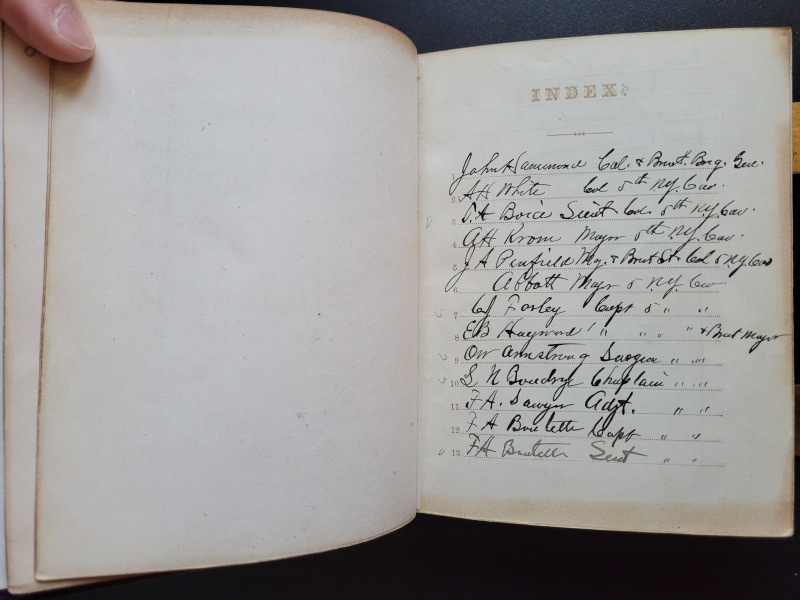 INDEX.
John Hammond Col. & Brevt. Brig. Gen.
2 A H White Col 5th N.Y. Cav.
3 T. A Boice Lieut Col. 5th N.Y. Cav.
4 A H Krom Major 5th N.Y. Cav.
5 J A Penfield Maj. & Brevt Lt Col 5 N.Y. Cav
6 Abbott Majr 5 N.Y. Cav
7 Farley Capt 5 " "
8 E B Hayward " " " " & Brvt Major
9 O W Armstrong Surgeon " "
10 L N Boudrye Chaplain " "
11 F A. Sawyer Adjt. " "
12 F A Boutelle Capt " "
13 F A Boutelle Lieut " "